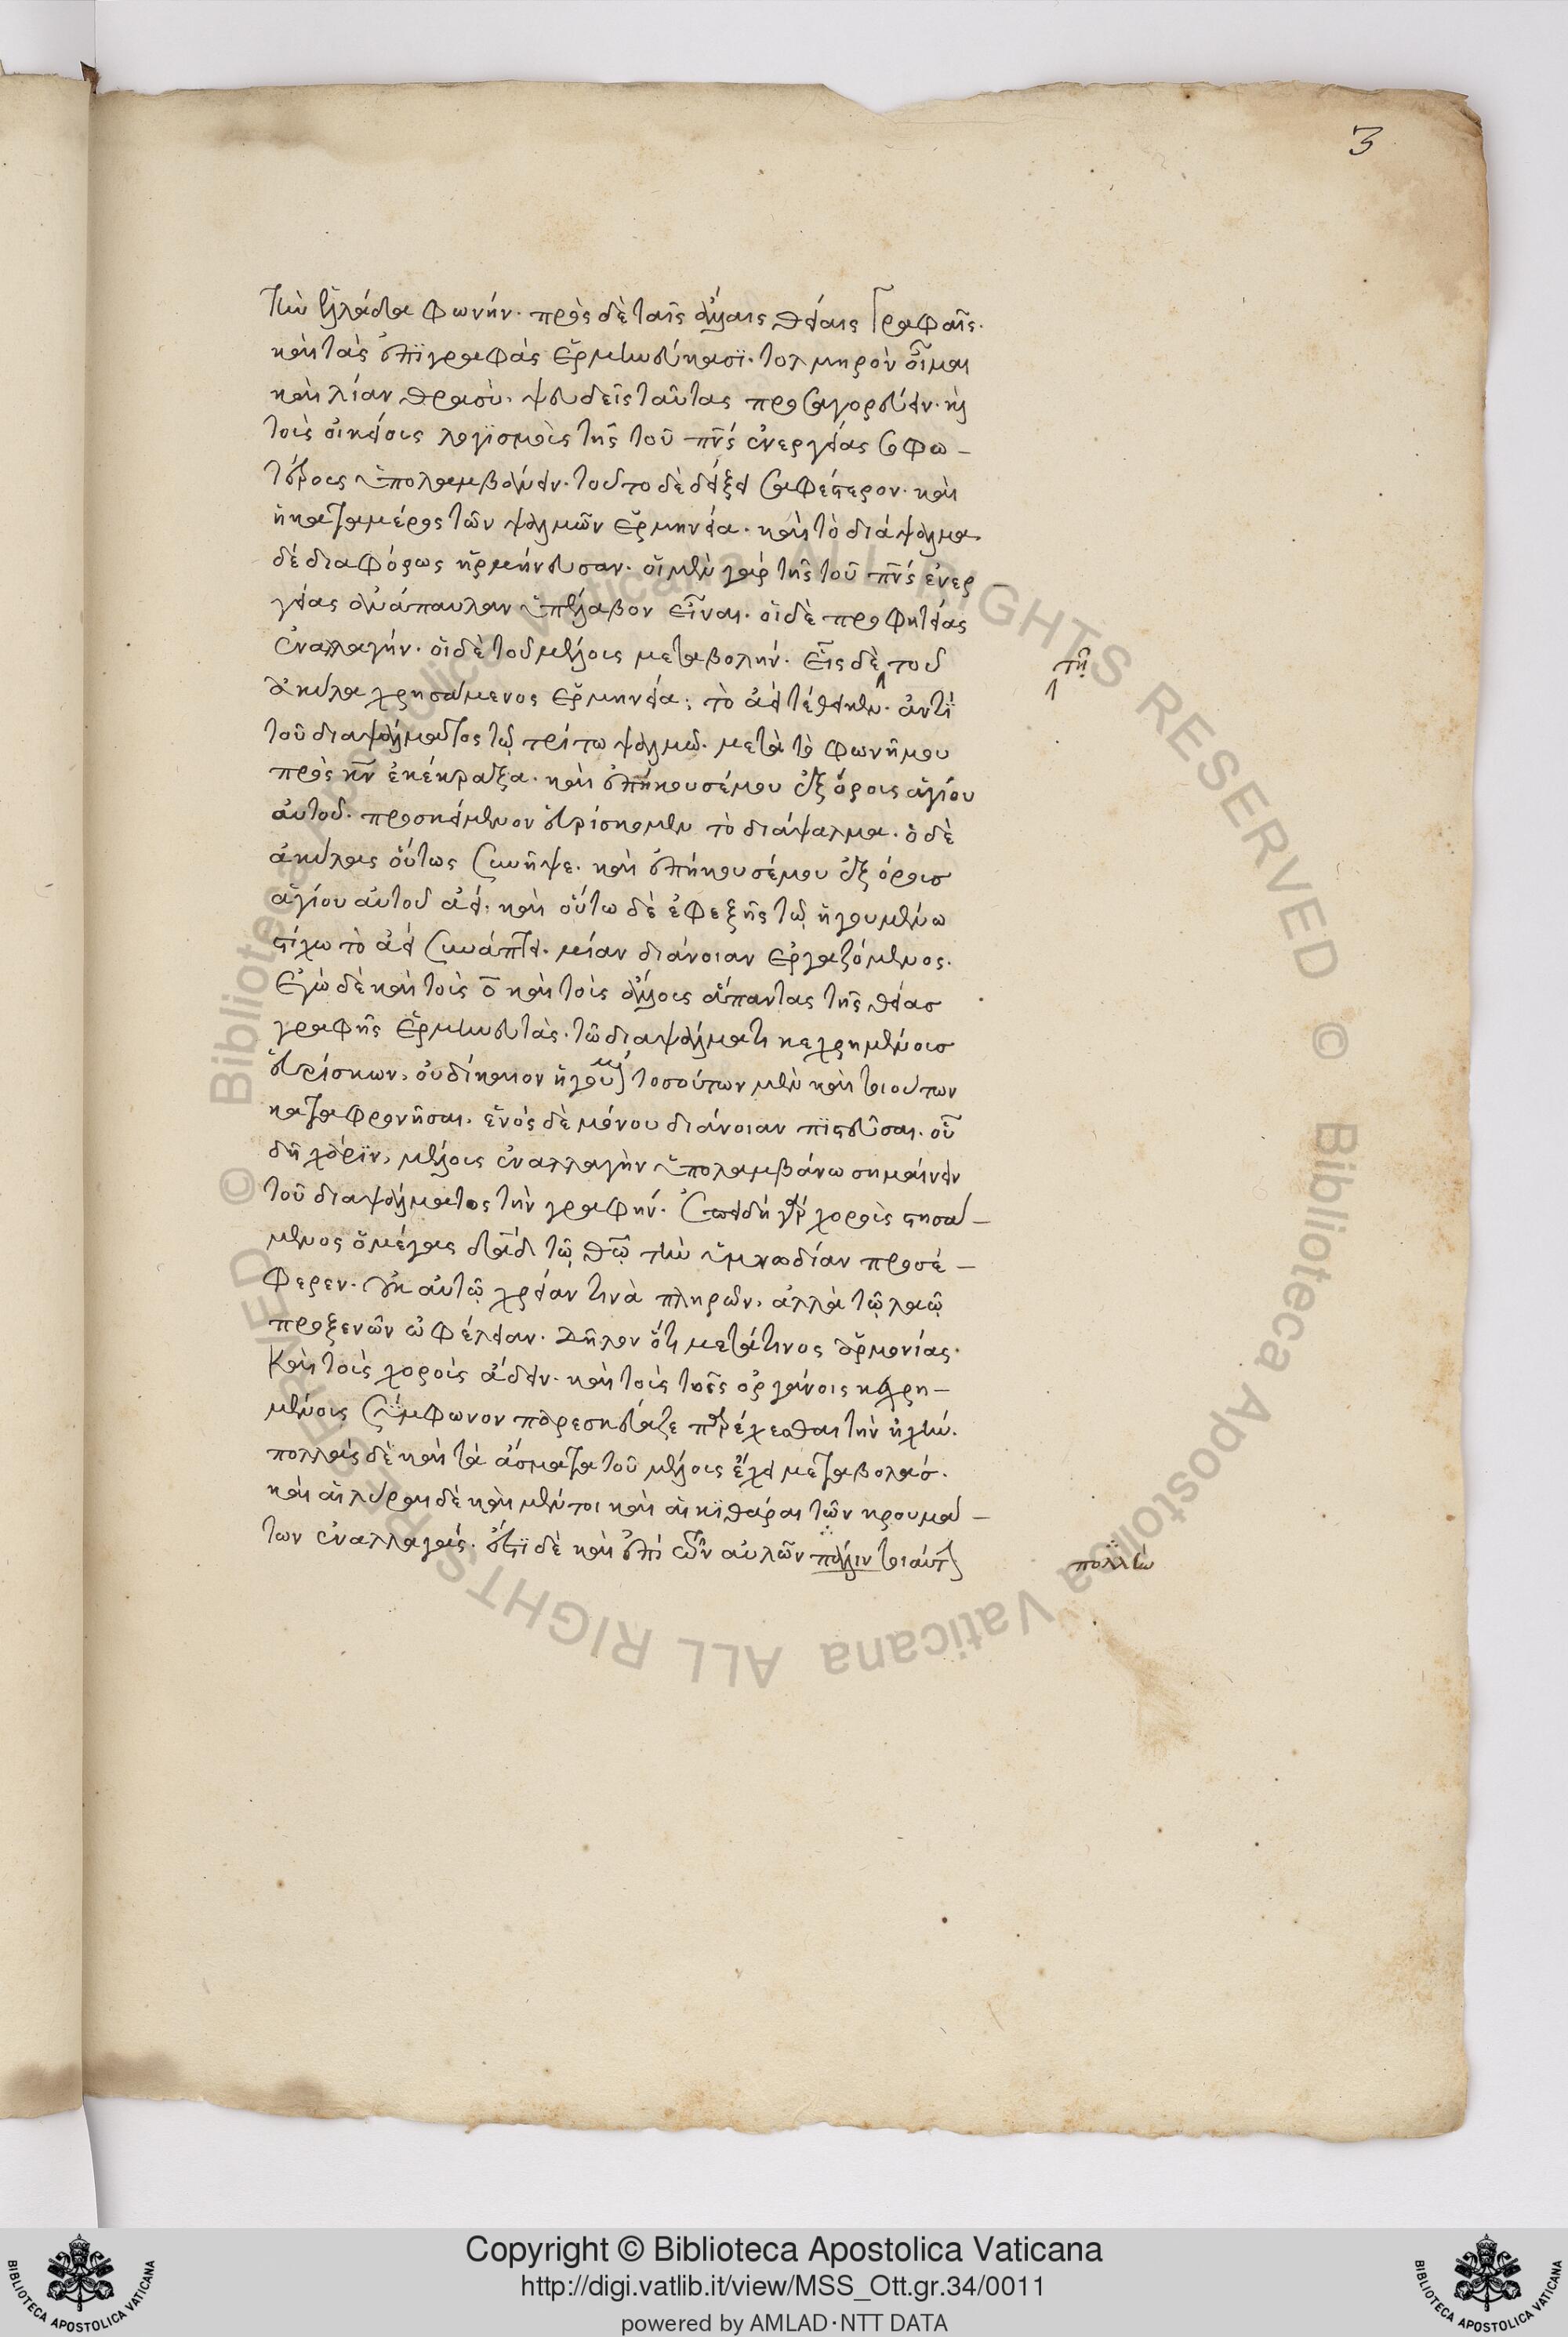 3
τὴν ἑλλάδα φωνήν. πρὸς δὲ ταῖς ἄλλαις θείαις γραφαῖς.
καὶ τὰς ἐπϊγραφὰς ἑρμηνεύκασϊ. τολμηρὸν οἶμαι
καὶ λίαν θρασὺ. ψευδεῖς ταύτας προσαγορεύειν. κ̀
τοῖς οἰκείοις λογϊσμοῖς τῆς τοῦ πν̅ς ἐνεργείας σοφω –
τέρους ὑπολαμβάνειν. τοῦτο δὲ δείξει σαφέστερον. καὶ
ἡ καταμέρος τῶν ψαλμῶν ἑρμηνεία. καὶ τὸ διάψαλμα
δὲ διαφόρως ἡρμήνευσαν. οἱ μὲν γὰρ τῆς τοῦ πν̅ς ἐνερ
γείας ἀνάπαυλαν ὑπέλαβον εἶναι. οἱ δὲ προφητείας
ἐναλλαγήν. οἱ δὲ τοῦ μέλους μεταβολήν. εἷς δὲ τοῦ
τῇ
ἀκύλα χρησάμενος ἑρμηνεία· τὸ ἀεὶ τέθεικεν. ἀντϊ
τοῦ διαψάλματος τῷ τρίτω ψαλμῶ. μετὰ τὸ φωνῇ μου
πρὸς κ̅ν ἐκέκραξα. καὶ ἐπήκουσέ μου ἐξ ὄρους ἁγίου
αὐτοῦ. προσκείμενον εὑρίσκομεν τὸ διάψαλμα. ὁ δὲ
ἀκύλας οὕτως συνῆψε. καὶ ἐπήκουσέ μου ἐξ ὄρουσ
ἁγίου αὐτοῦ ἀεί· καὶ οὕτω δὲ ἐφεξῆς τῷ ἡγουμένω
στίχω τὸ ἀεὶ συνάπτει. μίαν διάνοιαν ἐργαζόμενος.
Ἐγὼ δὲ καὶ τοῖς ο̅ καὶ τοῖς ἄλλοις ἅπαντας τῆς θείασ
γραφῆς ἑρμηνευτὰς. τῶ διαψάλματι κεχρημένουσ
εὑρίσκων, οὐ δίκαιον ἡγοῦμ τοσούτων μὲν καὶ τοιούτων
καταφρονῆσαι. ἑνὸς δὲ μόνου διάνοιαν πϊστεῦσαι. οὗ
δὴ χάρϊν, μέλους ἐναλλαγὴν ὑπολαμβάνω σημαίνειν
τοῦ διαψάλματος τὴν γραφήν. Ἐπειδὴ γὰρ χοροὺς στησά –
μενος ὁ μέγας δα̅δ τῷ θ̅ῷ τὴν ὑμνωδίαν προσέ –
φερεν. οὐκ αὐτῷ χρείαν τινὰ πληρῶν, ἀλλὰ τῷ λαῷ
προξενῶν ὠφέλειαν. δῆλον ὅτι μετά τινος ἁρμονίας.
καὶ τοῖς χοροῖς ἄδειν. καὶ τοῖς τοῖς ὀργάνοις κεχρη –
μένοις σύμφωνον παρεσκεύαζε παρέχεσθαι τὴν ἠχήν.
πολλὰς δὲ καὶ τὰ ἄσματα τοῦ μέλους ἔχει μεταβολάσ.
καὶ αἱ λύραι δὲ καὶ μέντοι καὶ αἱ κϊθάραι τῶν κρουμά –
των ἐναλλαγάς. ἔστϊ δὲ καὶ ἐπὶ τῶν αὐλῶν πάλιν τοιαύτ
πολλὴν